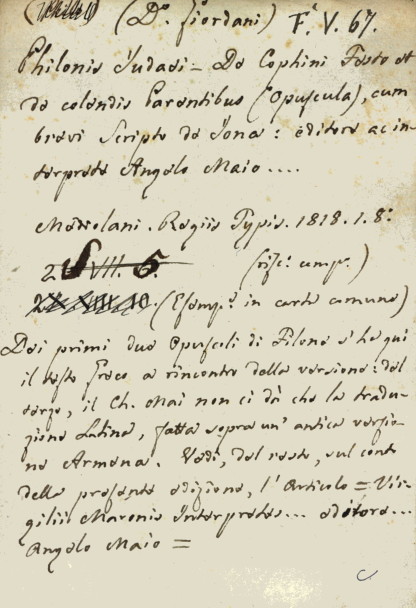 (Dº. Giordani) F. V. 67.
Philonis Judaei = De Cophini Festo et
de colendis Parentibus (Opuscula), cum
brevi Scripto de Jona: editore ac in-
terprete Angelo Maio....
Mediolani. Regiis Typis. 1818. 1. 8º.
VII. 6. (risc.º comp.º)
(Esemp.º in carta comune)
Dei primi due Opuscoli di Filone s'ha qui
il testo Greco a rincontro della versione: del
terzo, il Ch. Mai non ci dà che la tradu-
zione Latina, fatta sopra un' antica versio-
ne Armena. Vedi, del resto, sul conto
della presente edizione, l'Articolo = Vir-
gilii Maronis Interpretes... editore...
Angelo Maio =